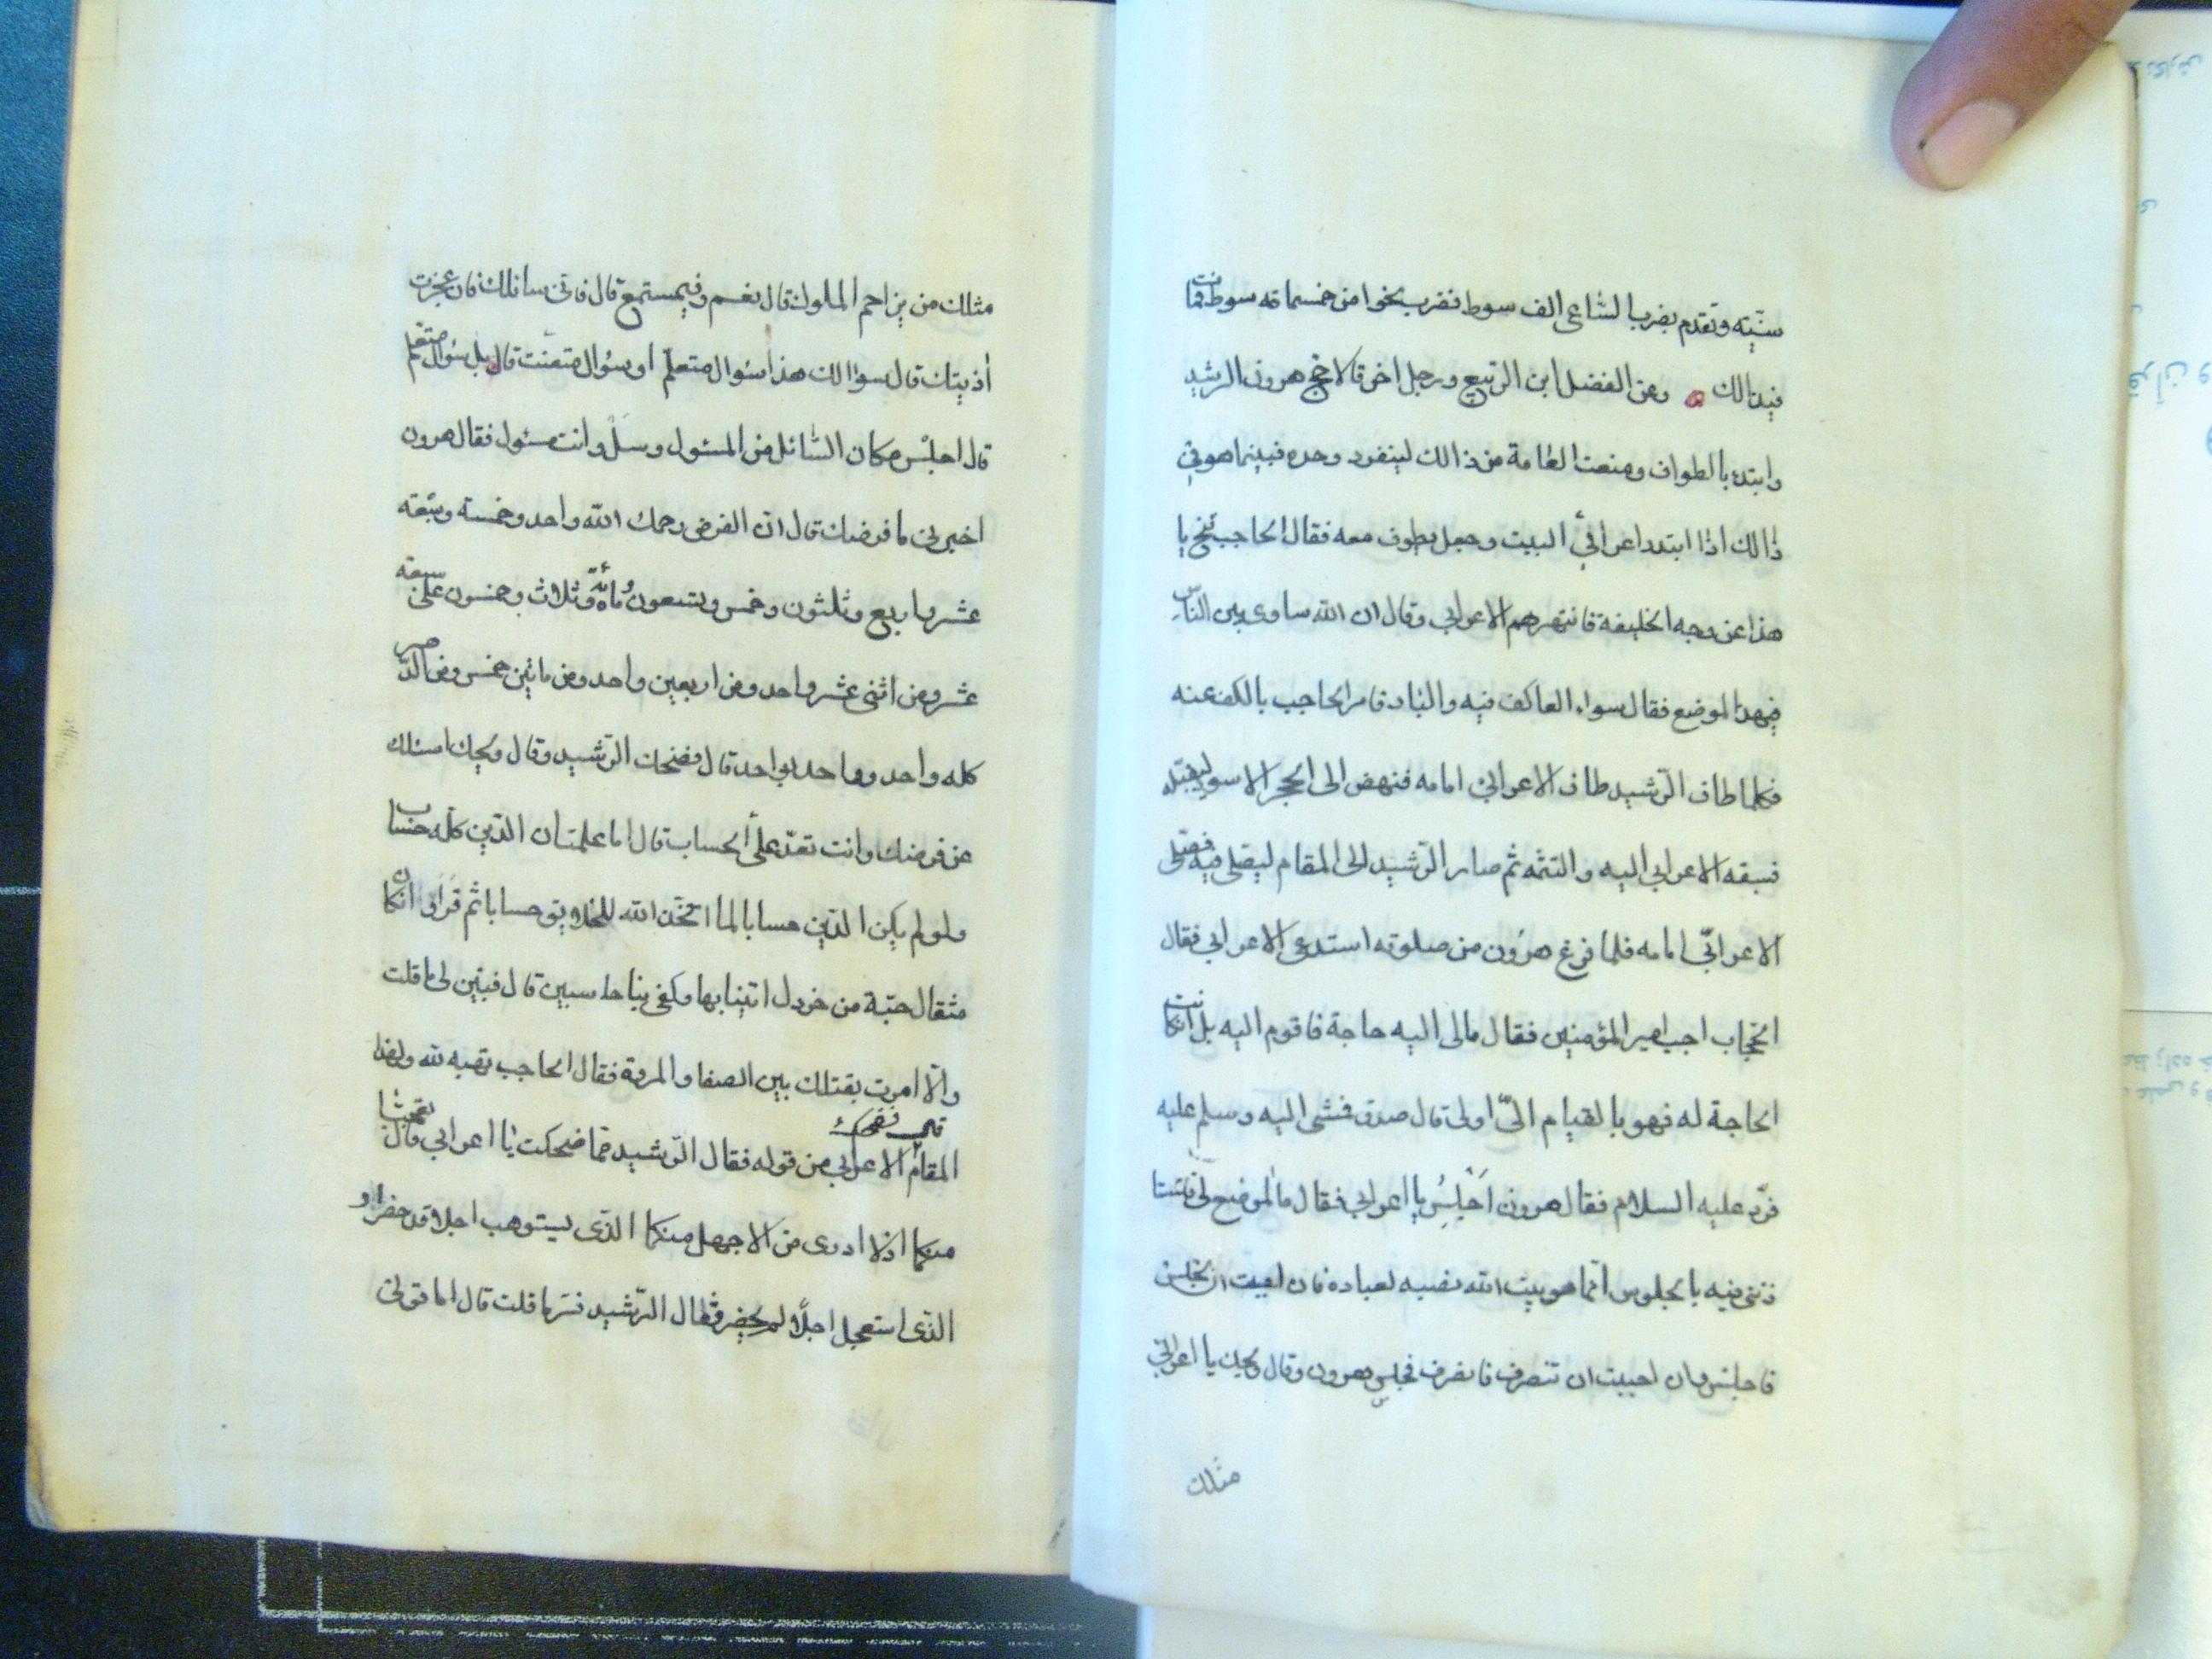 سنّيته وتقدم بضرب الشاعى الف سوط فضرب نحوا من خمسمائه سوط فمات
فيذالك وعن الفضل ابن الربيع ورجل اخر قالا حج هرون الرشيد
وابتدء بالطواف ومنعت العامة من ذالك لينفرد وحده فبينما هو في
ذالك اذا ابتدر اعرابي البيت وجعل يطوف معه فقال الحاجب تنح يا
هذا عن وجه الخليفة فانتهرهم الاعرابي وقال ان الله ساوى بين الناس
فيهذا الموضع فقال سواء العاكف فيه والباد فامر الحاجب بالكف عنه
فكلما طاف الرشيد طاف الاعرابي امامه فنهض الى الحجر الاسود ليقبله
فسبقه الاعرابي اليه والتثمه ثم صار الرشيد الى المقام ليصلى فيه فصلى
الاعرابي امامه فلما فرغ هرون من صلوته استدعى الاعرابي فقال
الحجاب اجب امير المؤمنين فقال مالى اليه حاجة فاقوم اليه بل ان كانت
الحاجة له فهو بالقيام الىّ اولى قال صدق فمشى اليه وسلم عليه
فردّ عليه السلام فقال هرون اَجْلِسُ يا اعرابي فقال ما الموضع لى فتستا
ذننى فيه بالجلوس انما هو بيت الله نصبه لعباده فان احببت ان تجلس
فاجلس وان احببت ان تنصرف فانصرف فجلس هرون وقال ويحك يا اعرابي
مثلك
مثلك من يزاحم الملوك قال نعم وفيمستمع قال فانى سائلك فان عجزت
أذيتك قال سؤالك هذا سئوال متعلّم أو سئوال متعنّت قال بل سئوال متعلم
قال اجلس مكان السّائل من المسئول وسلْ وانت مسئول فقال هرون
اخبرنى ما فرضك قال انّ الفرض رحمك الله واحد وخمسة وسبعة
عشر واربع وثلثون وخمس وتسعون ومأة وثلاث وخمسون على سبعة
عشر ومن اثنى عشر واحد ومن اربعين واحد ومن مائتين خمس ومن الدّهر
كله واحد وواحد بواحد قال فضحك الرّشيد وقال ويحك اسئلك
عن فرضك وانت تعدّ علىّ الحساب قال اما علمت ان الدّين كلّه حساب
ولو لم يكن الدّين حسابا لما اتّخذ الله للخلايق حسابا ثم قرأ وان كان
مثقال حبّة من خردل اتينا بها وكفى بنا حاسبين قال فبيّن لى ما قلت
والّا امرت بقتلك بين الصفا والمروة فقال الحاجب تهبه لله ولهذا
المقام قال فضحك الاعرابي من قوله فقال الرّشيد ممّا ضحكت يا اعرابي قال تعجّبا
منكما اذ لا ادرى من الاجهل منكما الذى يستوهب اجلا قد حضر او
الذى استعجل اجلًا لم يحضر فقال الرّشيد فسّر ما قلت قال اما قولى